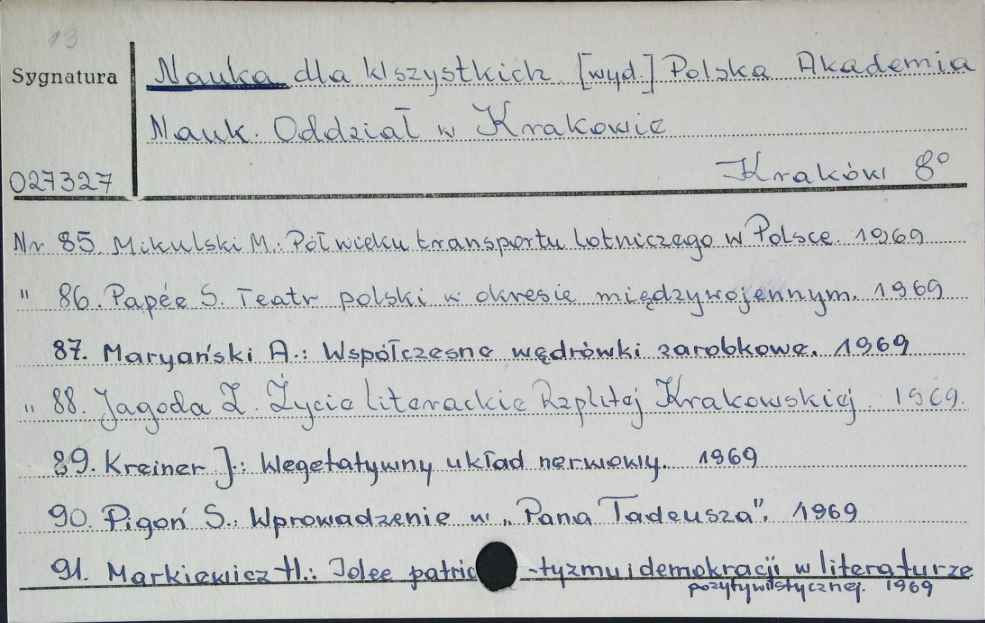 13
Sygnatura
Nauka dla Wszystkich [wyd.] Polska Akademia
Nauk. Oddział w Krakowie
027327
Kraków 8°
Nr 85. Mikulski M.: Pół wieku transportu lotniczego w Polsce. 1969
" 86. Papée S. Teatr polski w okresie międzywojennym. 1969
87. Maryański A.: Współczesne wędrówki zarobkowe. 1969
" 88. Jagoda Z. Życie literackie Rzplitej Krakowskiej. 1969.
89. Kreiner J.: Wegetatywny układ nerwowy. 1969
90. Pigoń S.: Wprowadzenie w „Pana Tadeusza". 1969
91. Markiewicz H.: Idee patrio -tyzmu i demokracji w literaturze
pozytywistycznej. 1969